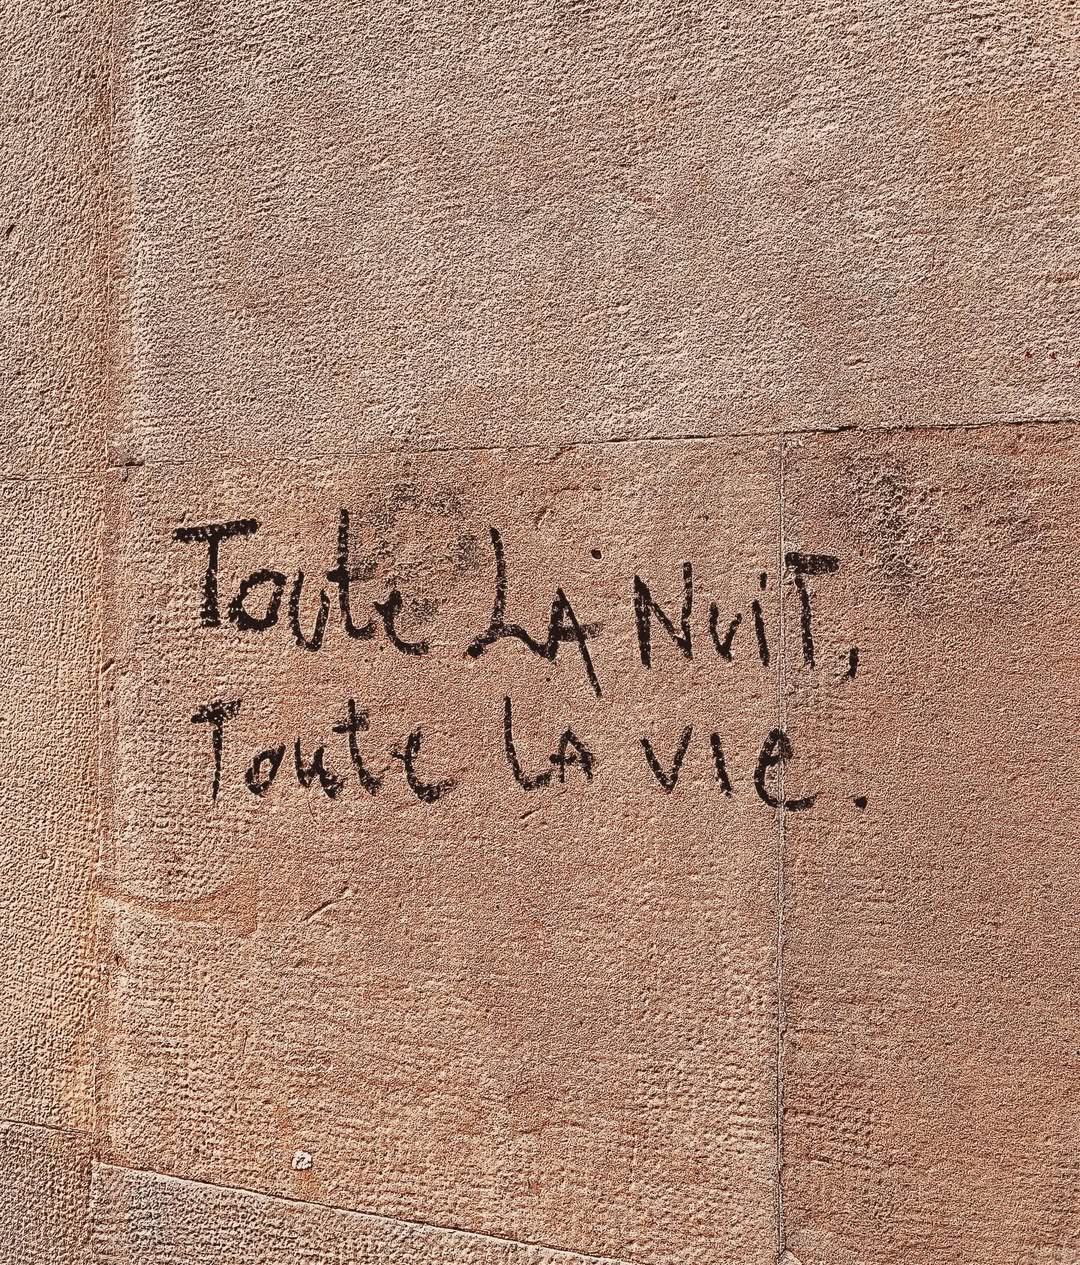 Toute LA NuiT,
Toute LA vie.